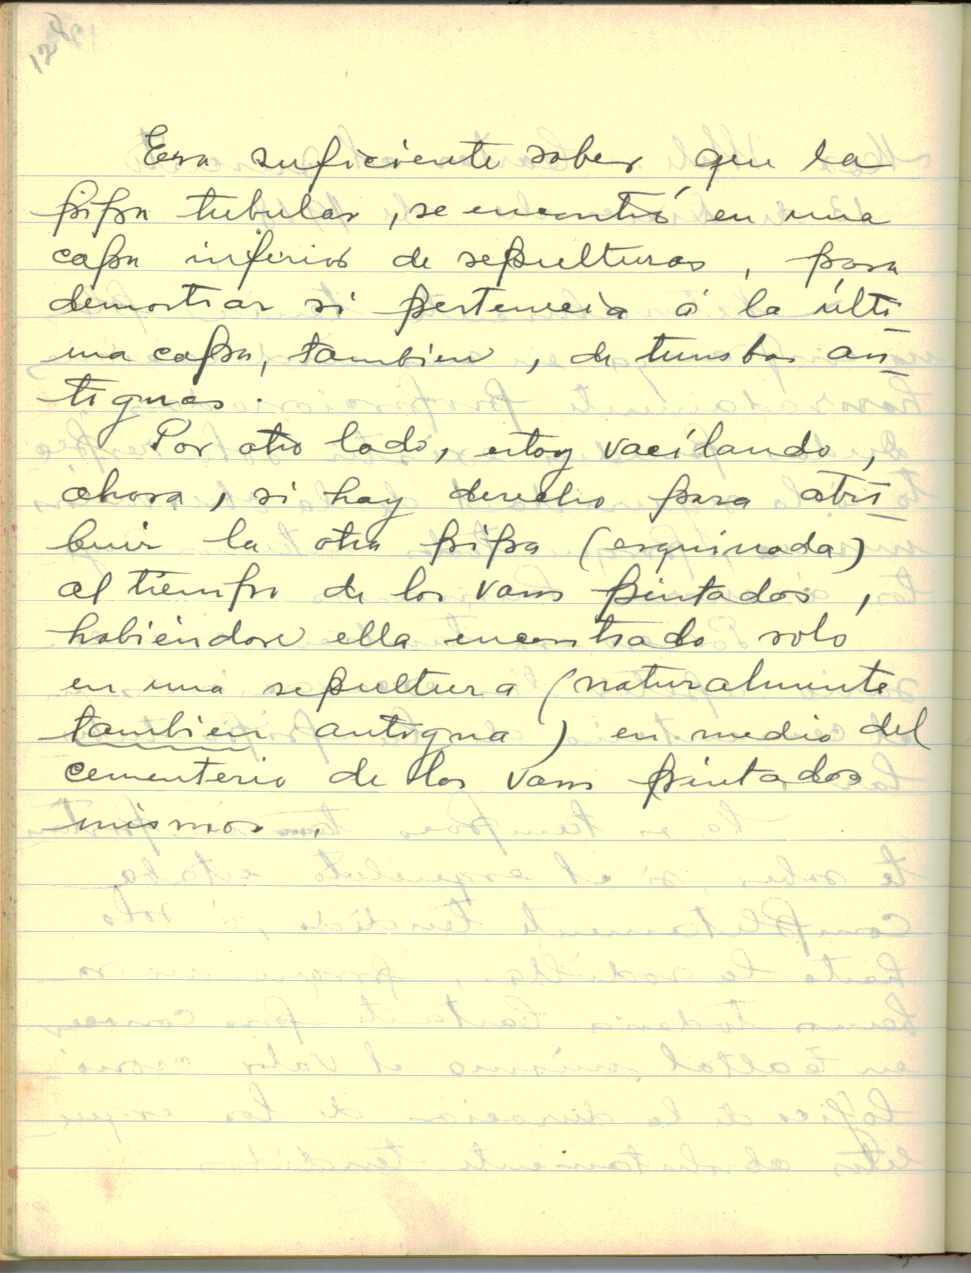 128
Era suficiente saber que la
pipa tubular, se encontró en una
capa inferior de sepulturas, para
demostrar si pertenecia á la últi
ma capa, tambien, de tumbas an
tiguas.
Por otro lado, estoy vacilando,
ahora, si hay derecho para atri
buir la otra pipa (esquinada)
al tiempo de los vasos pintados,
habiéndose ella encontrado solo
en una sepultura (naturalmente
tambien antigua) en medio del
cementerio de los vasos pintados
mismos.